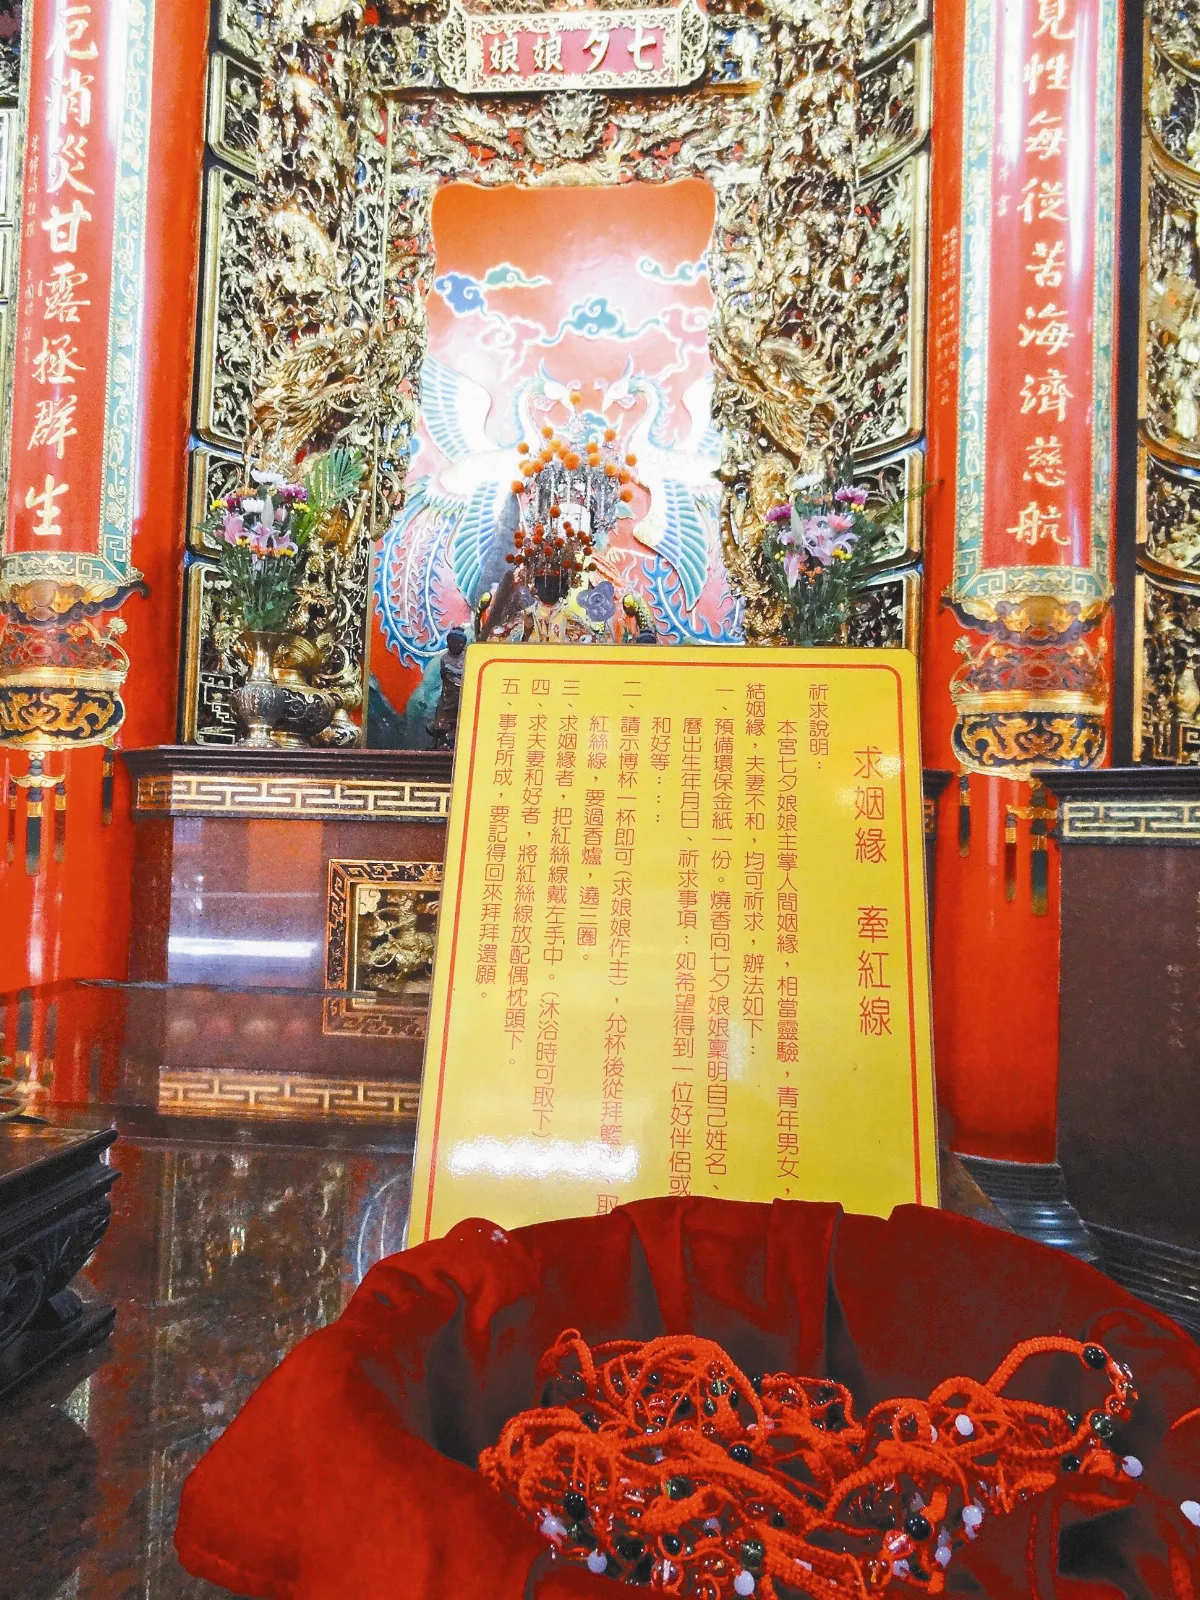 七夕娘娘
見性每從苦海濟慈航
厄消災甘露拯群生
求姻緣　牽紅線
祈求說明：
本宮七夕娘娘主掌人間姻緣，相當靈驗，青年男女，
結姻緣，夫妻不和，均可祈求，辦法如下：
一、預備環保金紙一份。燒香向七夕娘娘稟明自己姓名、
曆出生年月日、祈求事項：如希望得到一位好伴侶或
和好等：：
二、請示博杯一杯即可（求娘娘作主），允杯後從拜籃、取
紅絲線，要過香爐，遶三圈。
三、求姻緣者，把紅絲線戴左手中。（沐浴時可取下）
四、求夫妻和好者，將紅絲線放配偶枕頭下。
五、事有所成，要記得回來拜拜還願。